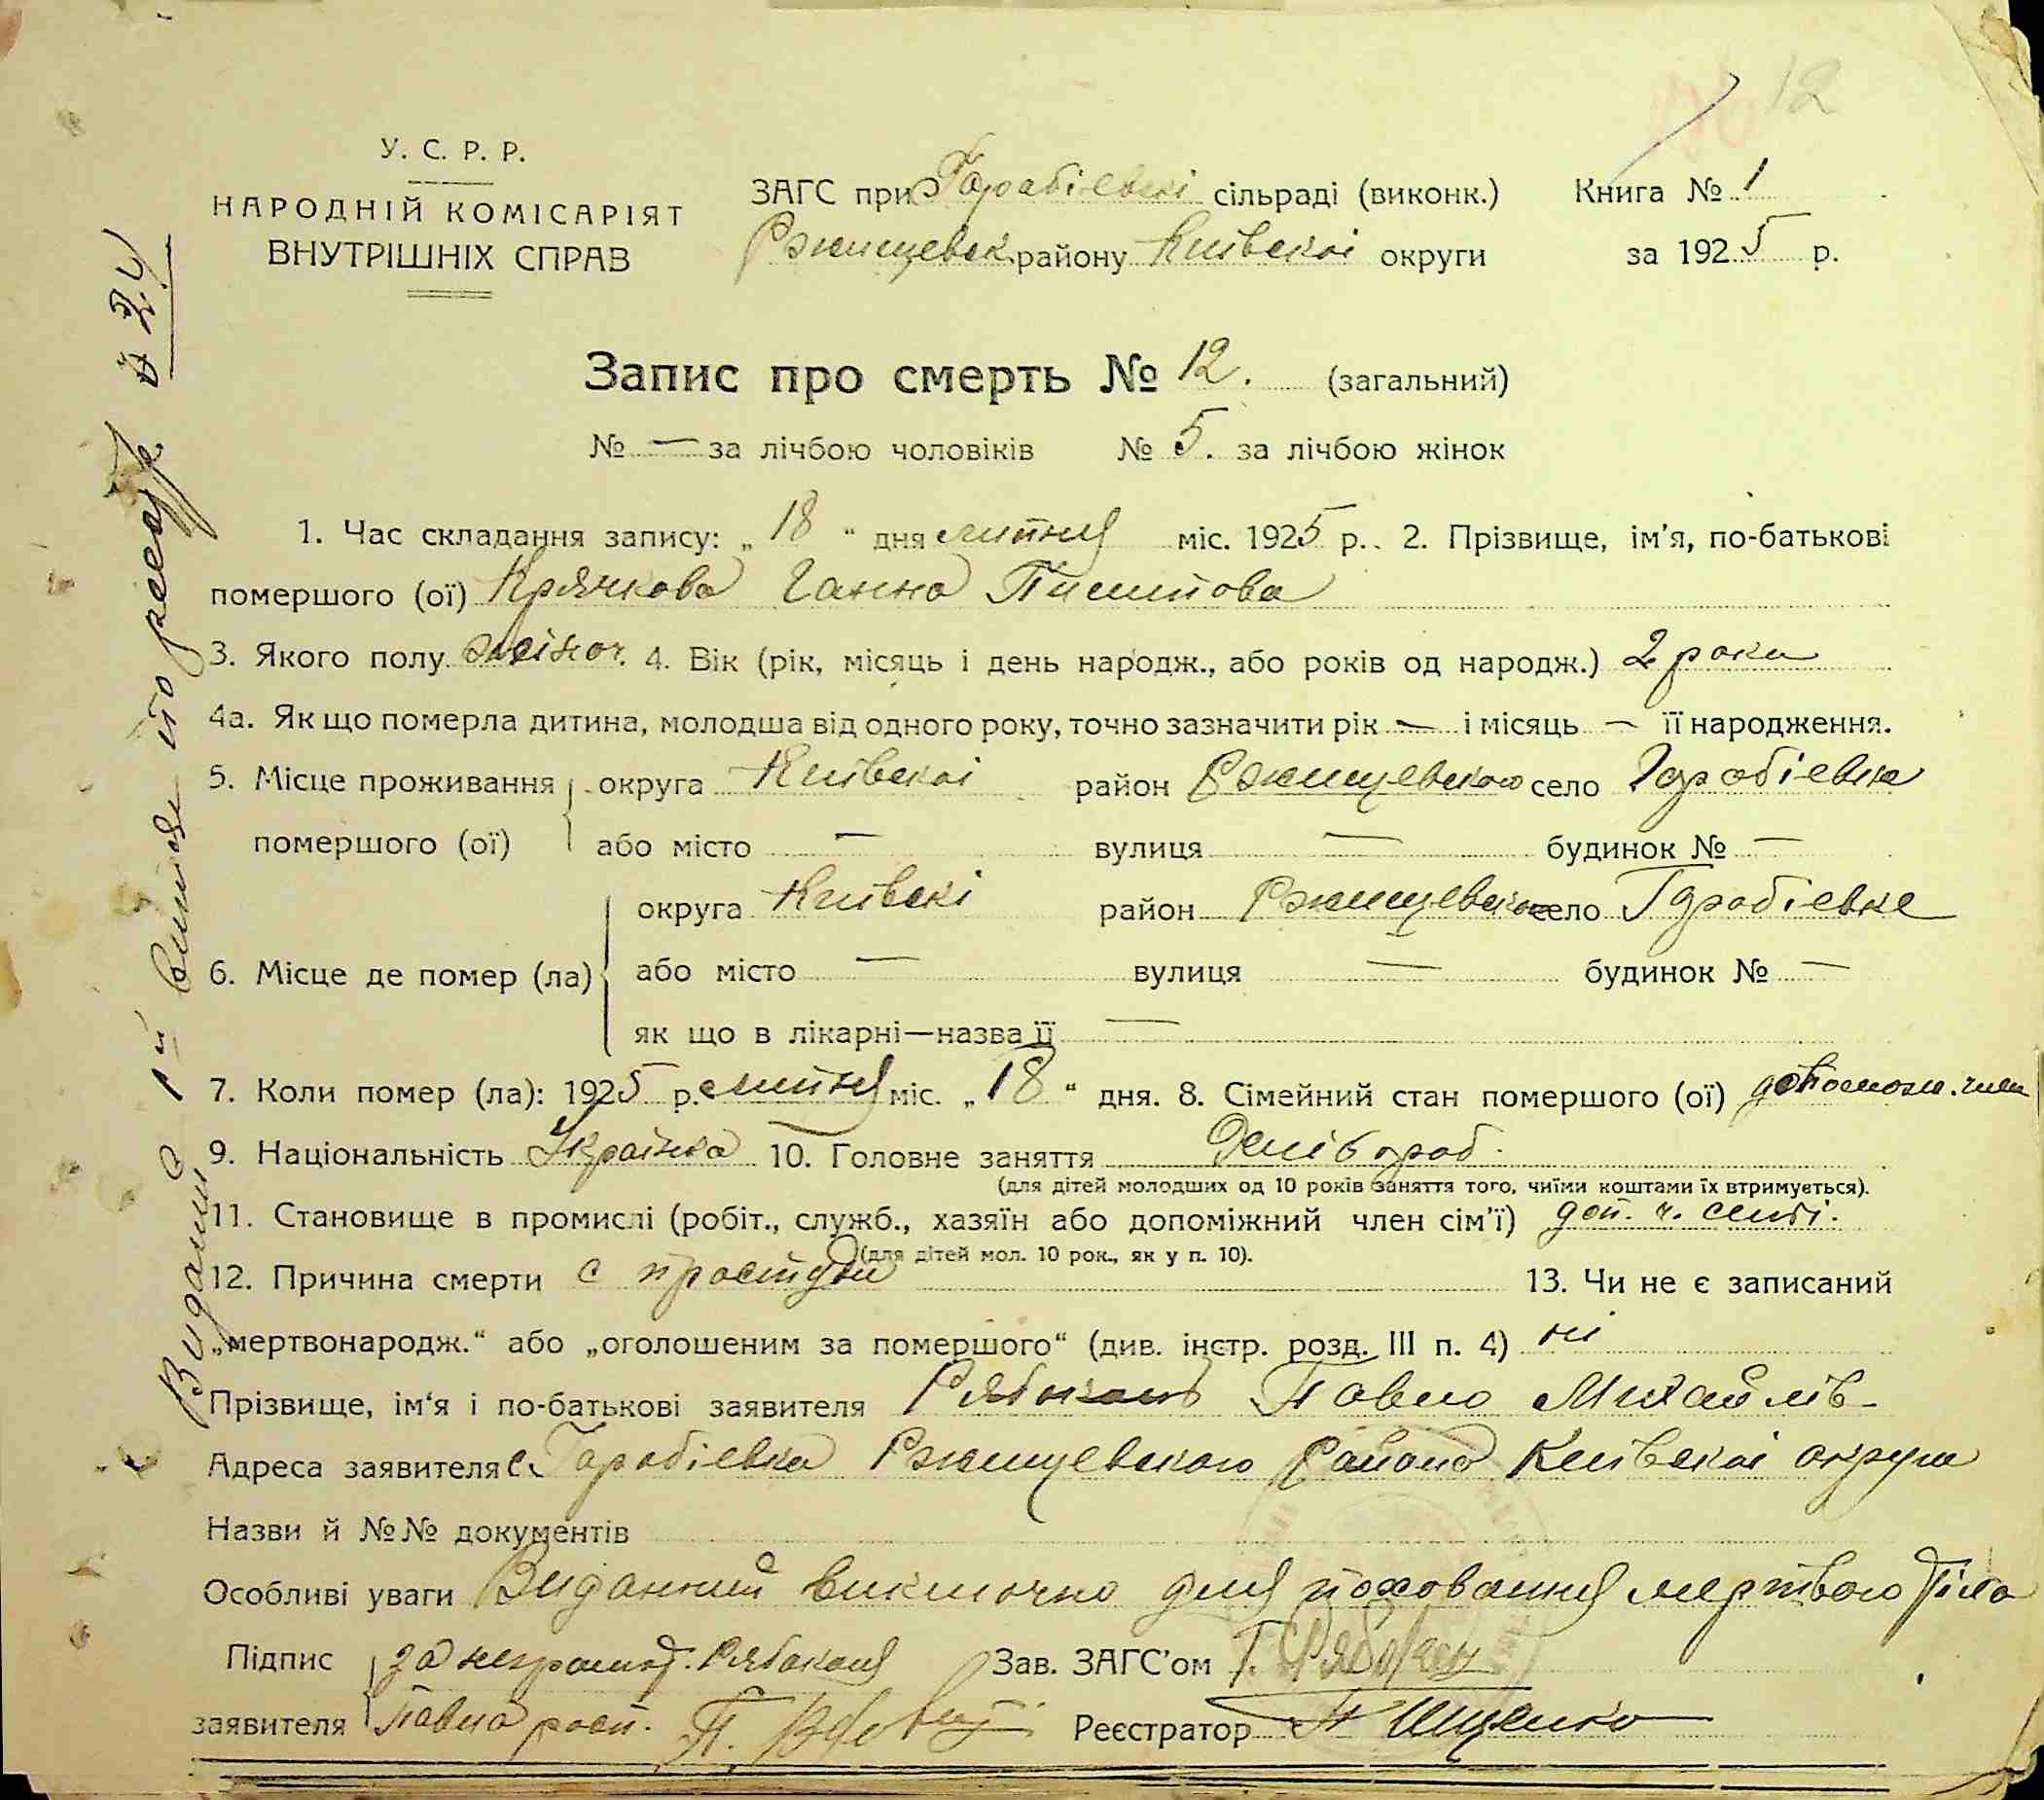 12
У. С. Р. Р.
НАРОДНІЙ КОМІСАРІЯТ
ВНУТРІШНІХ СПРАВ
ЗАГС при Гарабіевкі сільраді (виконк.) Книга № 1
Ржищевск. району Київскоі округи за 1925 р.
Запис про смерть № 12. (загальний)
№ — за лічбою чоловіків № 5. за лічбою жінок
1. Час складання запису: „ 18 “ дня липня міс. 1925 р.. 2. Прізвище, ім’я, по-батькові
помершого (ої) Крячкова Ганна
3. Якого полу жіноч. 4. Вік (рік, місяць і день народж., або років од народж.) 2 роки
4а. Як що померла дитина, молодша від одного року, точно зазначити рік — і місяць — її народження.
5. Місце проживання округа Київскоі район Ржищевского село Гарабіевка
помершого (ої) або місто — вулиця — будинок № —
округа Київскі район Ржищевского село Гарабіевке
6. Місце де помер (ла) або місто — вулиця — будинок № —
як що в лікарні—назва її —
7. Коли помер (ла): 1925 р. липня міс. „ 18 “ дня. 8. Сімейний стан помершого (ої) допомож. член
9. Національність Українка 10. Головне заняття
(для дітей молодших од 10 років заняття того, чиїми коштами їх втримується).
11. Становище в промислі (робіт., служб., хазяїн або допоміжний член сім’ї) доп. ч. симі.
(для дітей мол. 10 рок., як у п. 10).
12. Причина смерти с простуди 13. Чи не є записаний
„мертвонародж.“ або „оголошеним за помершого“ (див. інстр. розд. III п. 4) ні
Прізвище, ім‘я і по-батькові заявителя Рябоконь Павло Михайлів
Адреса заявителя с. Гарабіевка Ржищевского Району Київскоі округи
Назви й №№ документів
Особливі уваги Виданний виключно для поховання мертвого тіла
Підпис за неграмот. Рябоконя Зав. ЗАГС’ом Г. Рябокон
заявителя Павла росп. П. Вдовиц Реєстратор Іщенко
Видатий 1й витяг по реєстр № 24